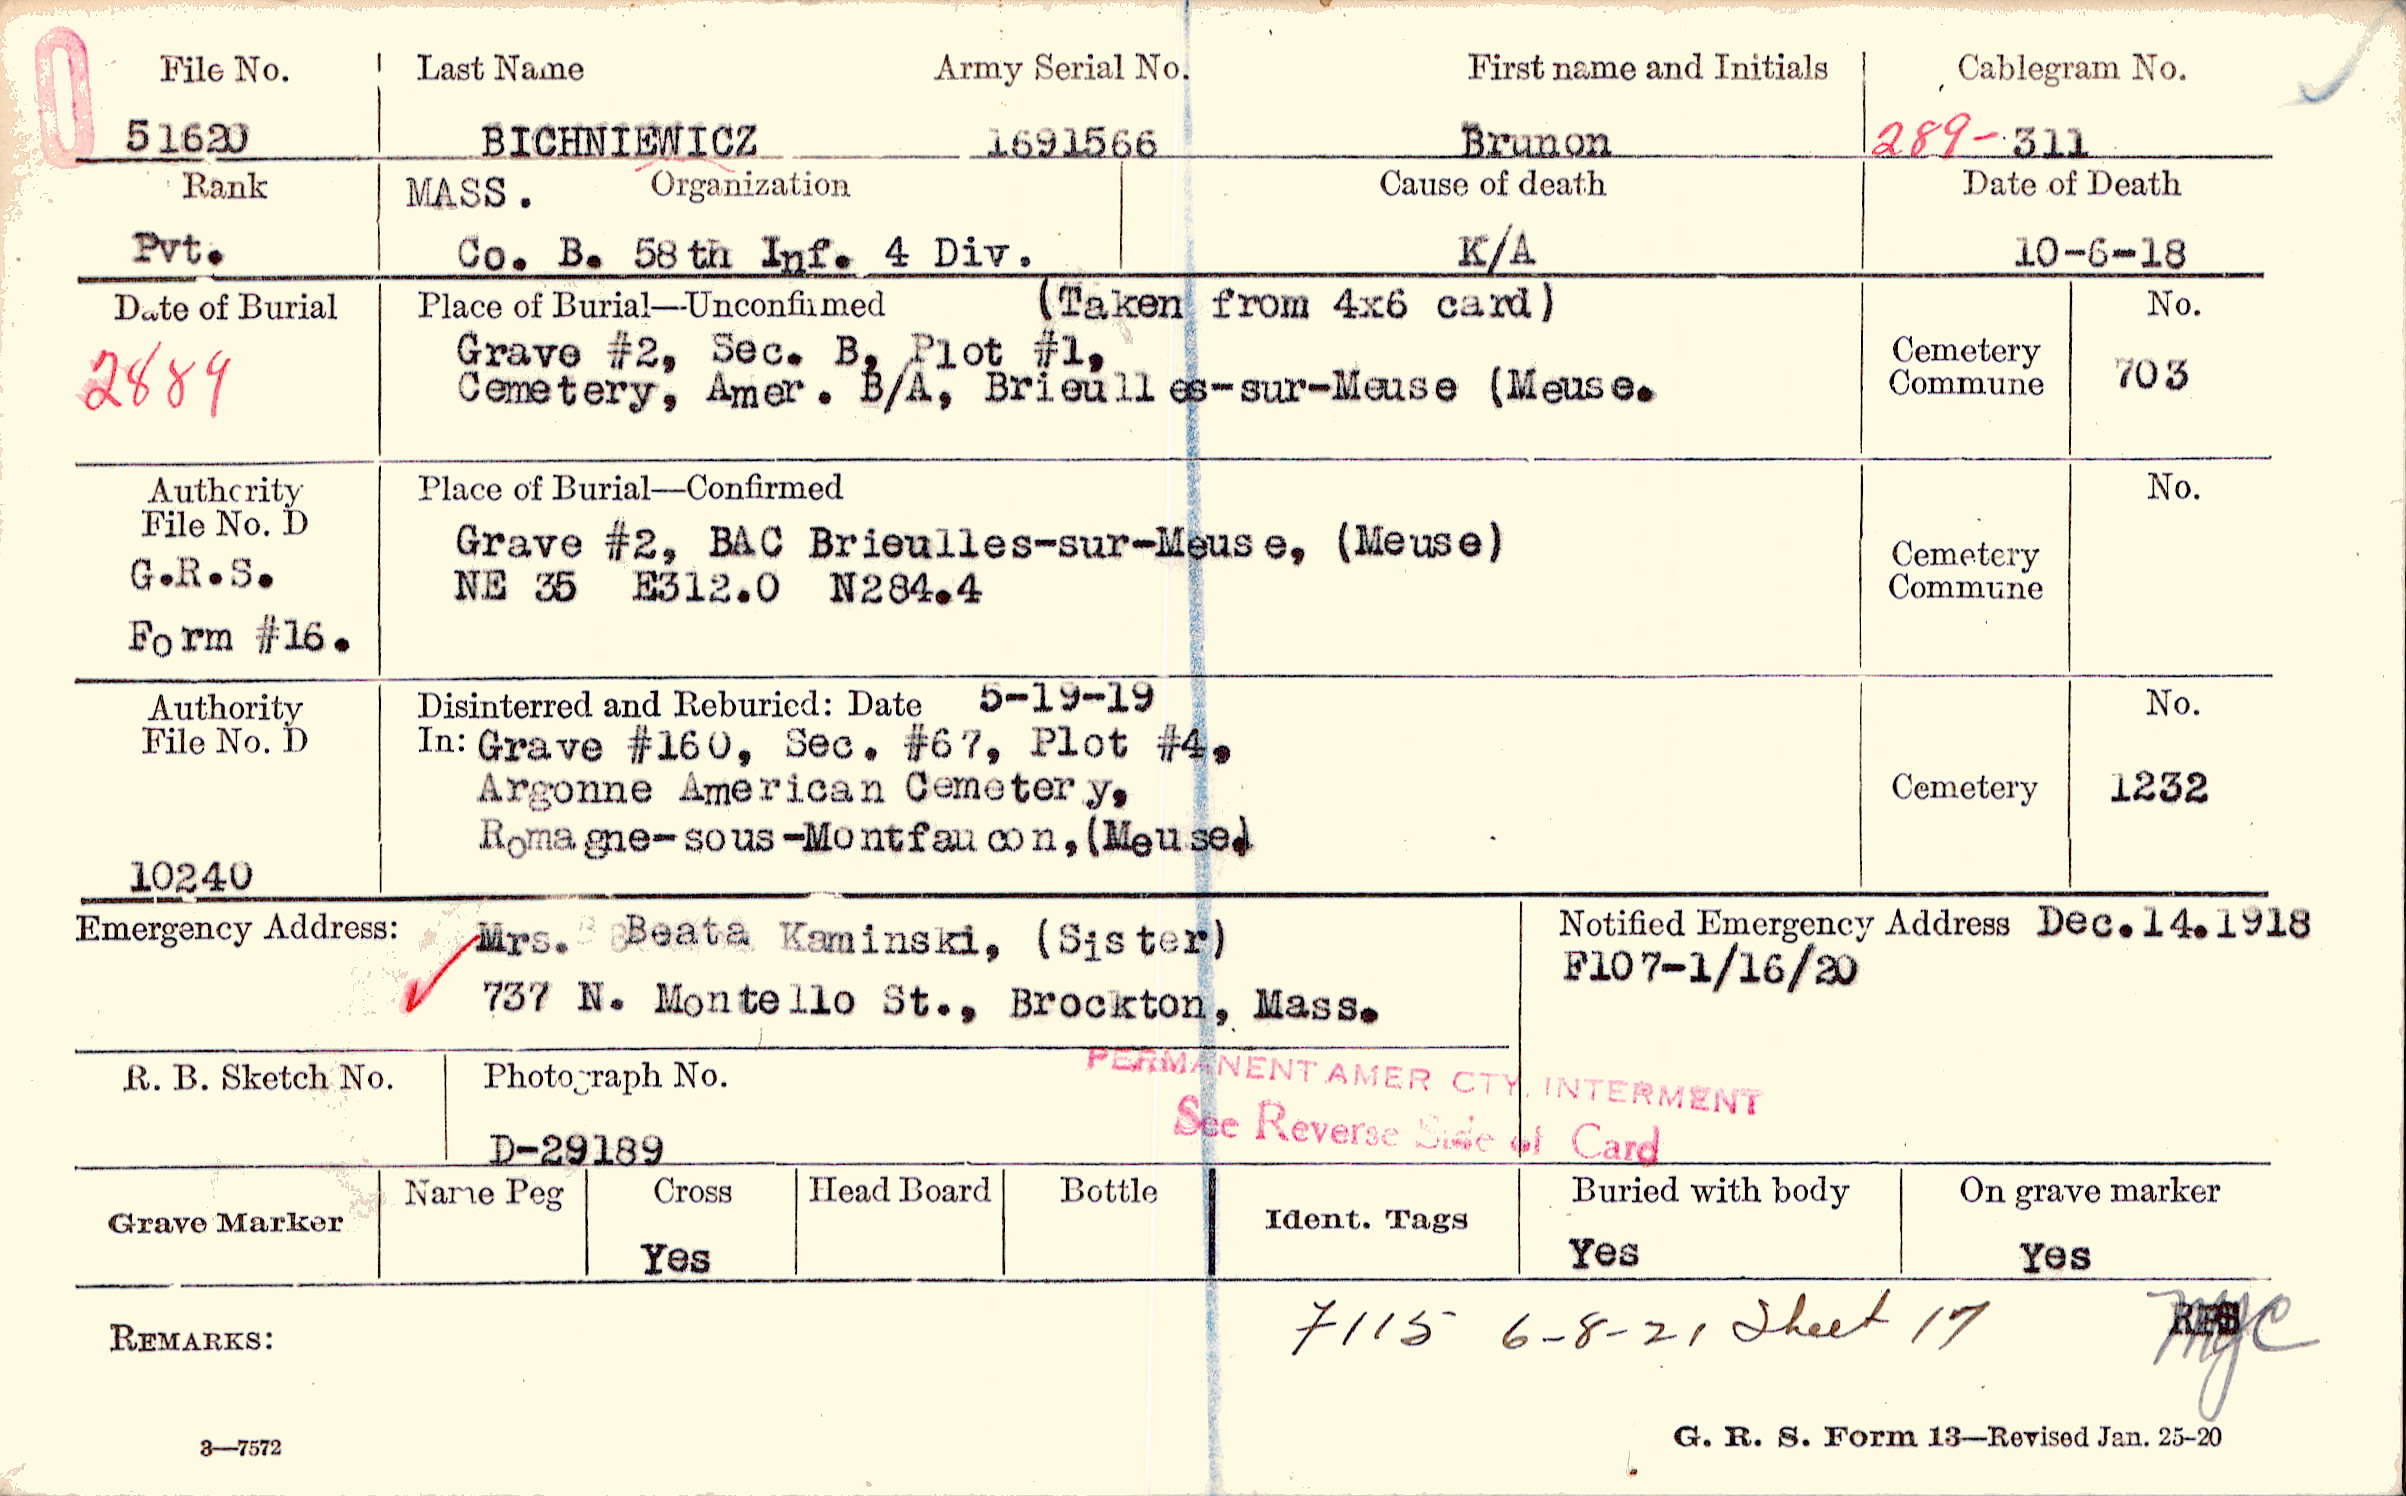 File No. Last Name Army Serial No. First name and Initials Cablegram No.
51620 BICHNIEWICZ 1691566 Brunon 289- 311
Rank MASS. Organization Cause of death Date of Death
Pvt. Co. B. 58th Inf. 4 Div. K/A 10-6-18
Date of Burial Place of Burial—Unconfirmed (Taken from 4x6 card) No.
2889 Grave #2, Sec. B, Plot #1, Cemetery
Cemetery, Amer. B/A, Brieulles-sur-Meuse (Meuse. Commune 703
Authority Place of Burial—Confirmed No.
File No. D Grave #2, BAC Brieulles-sur-Meuse, (Meuse) Cemetery
G.R.S. NE 35 E312.0 N284.4 Commune
Form #16.
Authority Disinterred and Reburied: Date 5-19-19 No.
File No. D In: Grave #160, Sec. #67, Plot #4,
Argonne American Cemetery, Cemetery 1232
Romagne-sous-Montfaucon,(Meuse)
10240
Emergency Address: Mrs. Beata Kaminski, (Sister) Notified Emergency Address Dec.14.1918
737 N. Montello St., Brockton, Mass. F107-1/16/20
R. B. Sketch No. Photograph No. PERMANENT AMER CTY. INTERMENT
D-29189 See Reverse Side of Card
Grave Marker Name Peg Cross Head Board Bottle Ident. Tags Buried with body On grave marker
Yes Yes Yes
REMARKS: 7115 6-8-21 Sheet 17 MJC
3—7572 G. R. S. Form 13—Revised Jan. 25-20